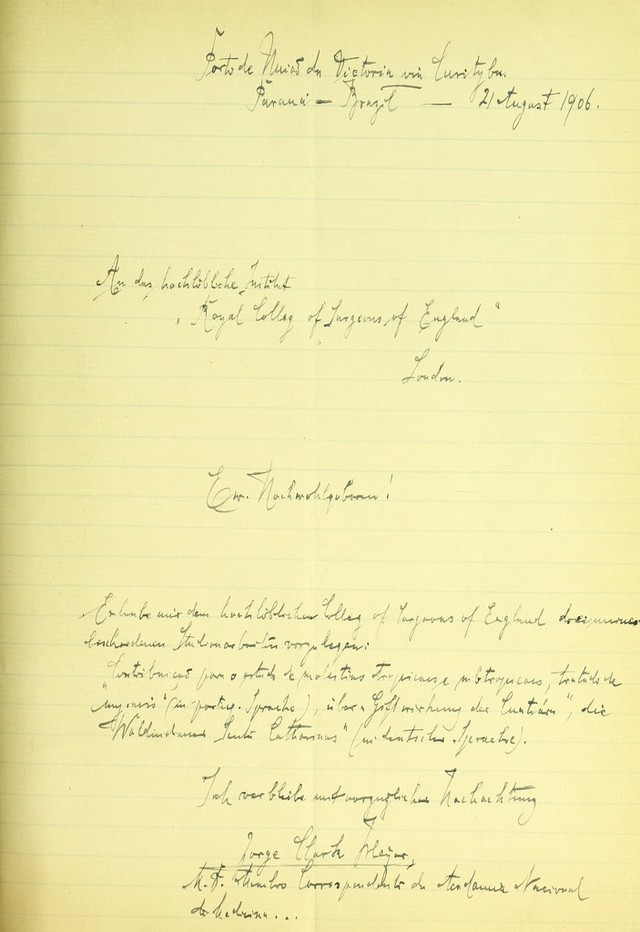 Porto de União da Victoria via Curityba.
Paraná – Brazil — 21 August 1906.
An das hochlöbliche Institut
„Royal Colleg of Surgeons of England“
London.
Ew. Hochwohlgeboren!
Erlaube mir dem hochlöblichen Colleg of Surgeons of England drei meiner
bescheidenen Studienarbeiten vorzulegen:
„Contribuição para o estudo de molestias tropicaes e subtropicaes, tratado de
myiasis“ (in portug. Sprache), über „Giftwirkung der“, die
„Waldindianer Santa Catharinas“ (in deutscher Sprache).
Ich verbleibe mit vorzüglicher Hochachtung
Jorge Clark
Membro Correspondente da Academia Nacional
de Medicina...